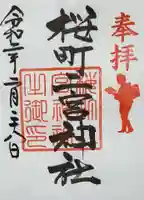 奉拝
桜町二宮神社
令和二年二月二十八日